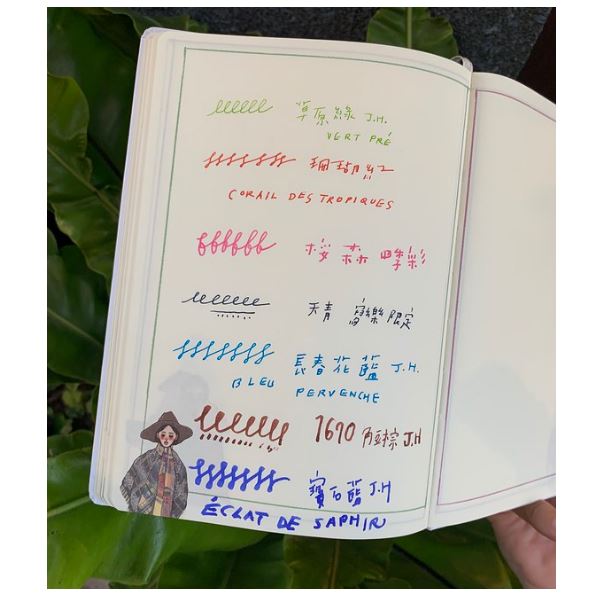 草原綠 J.H.
VERT PRÉ
珊瑚紅
CORAIL DES TROPIQUES
桜森 四季彩
天青 寫樂限定
長春花藍 J.H.
BLEU PERVENCHE
1670 J.H
寶石藍 J.H
ÉCLAT DE SAPHIR